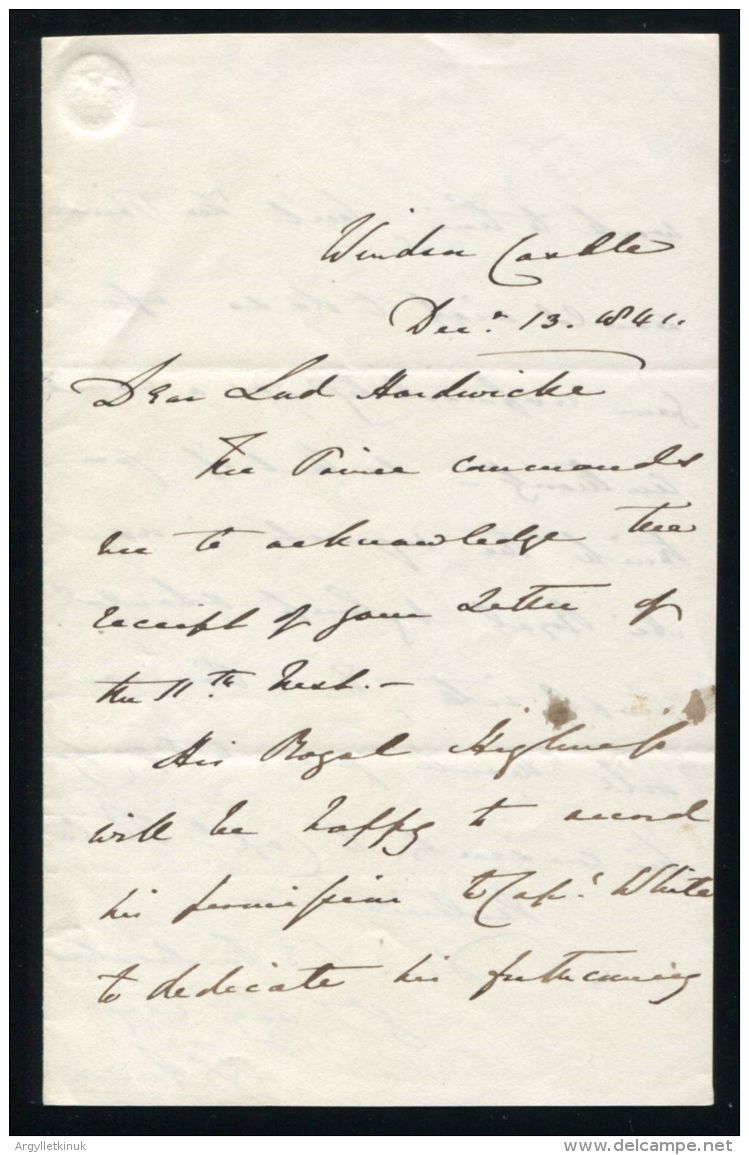 Windsor Castle
Decr. 13. 1841.
Dear Lord Hardwicke
The Prince commands
me to acknowledge the
receipt of your Letter of
the 11th Inst. –
His Royal Highness
will be happy to accord
his permission to Capt. White
to dedicate his forthcoming
Argylletkinuk
delcampe.net